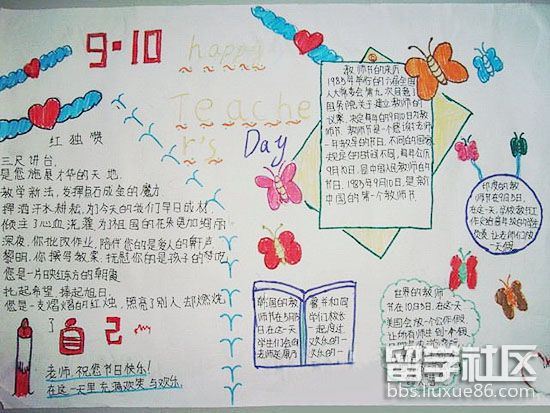 9·10
happy
Teache
r's
Day
红烛赞
三尺讲台,
是您施展才华的天地.
教学新法,发挥点石成金的魔力
挥洒汗水耕耘,为今天的我们早日成材
倾注了心血浇灌,为祖国的花朵更加绚丽
深夜,你批改作业,陪伴您的是爱人的鼾声
黎明,你撰写教案,抚慰你的是孩子的梦呓
您是一片映红东方的朝霞
托起希望,捧起旭日,
您是一支熠熠的红烛,照亮了别人,却燃烧
了自己
老师,祝您节日快乐!
在这一天里充满欢笑与欢乐.
教师节的来历
1985年举行的六届全国
人大常委会第九次同意了
国务院关于建立教师的
议案,决定每年的9月10日为教
师节.教师节是一个感谢老师
一年教导的节日,不同的国家
规定的时间不同,每年公历
9月10日,是中国人民教师的
节日,1985年9月10日,是新
中国的第一个教师节.
印度的教
师节在9月5日,
在这一天,学校
韩国的教
师节5月15
日在这一天
学生们会向
老师
并和同
学们
一起度过
欢乐的一
世界的教师
节在10月5日,在这一天
美国会放一个公休假
留学社区
bbs.liuxue86.com